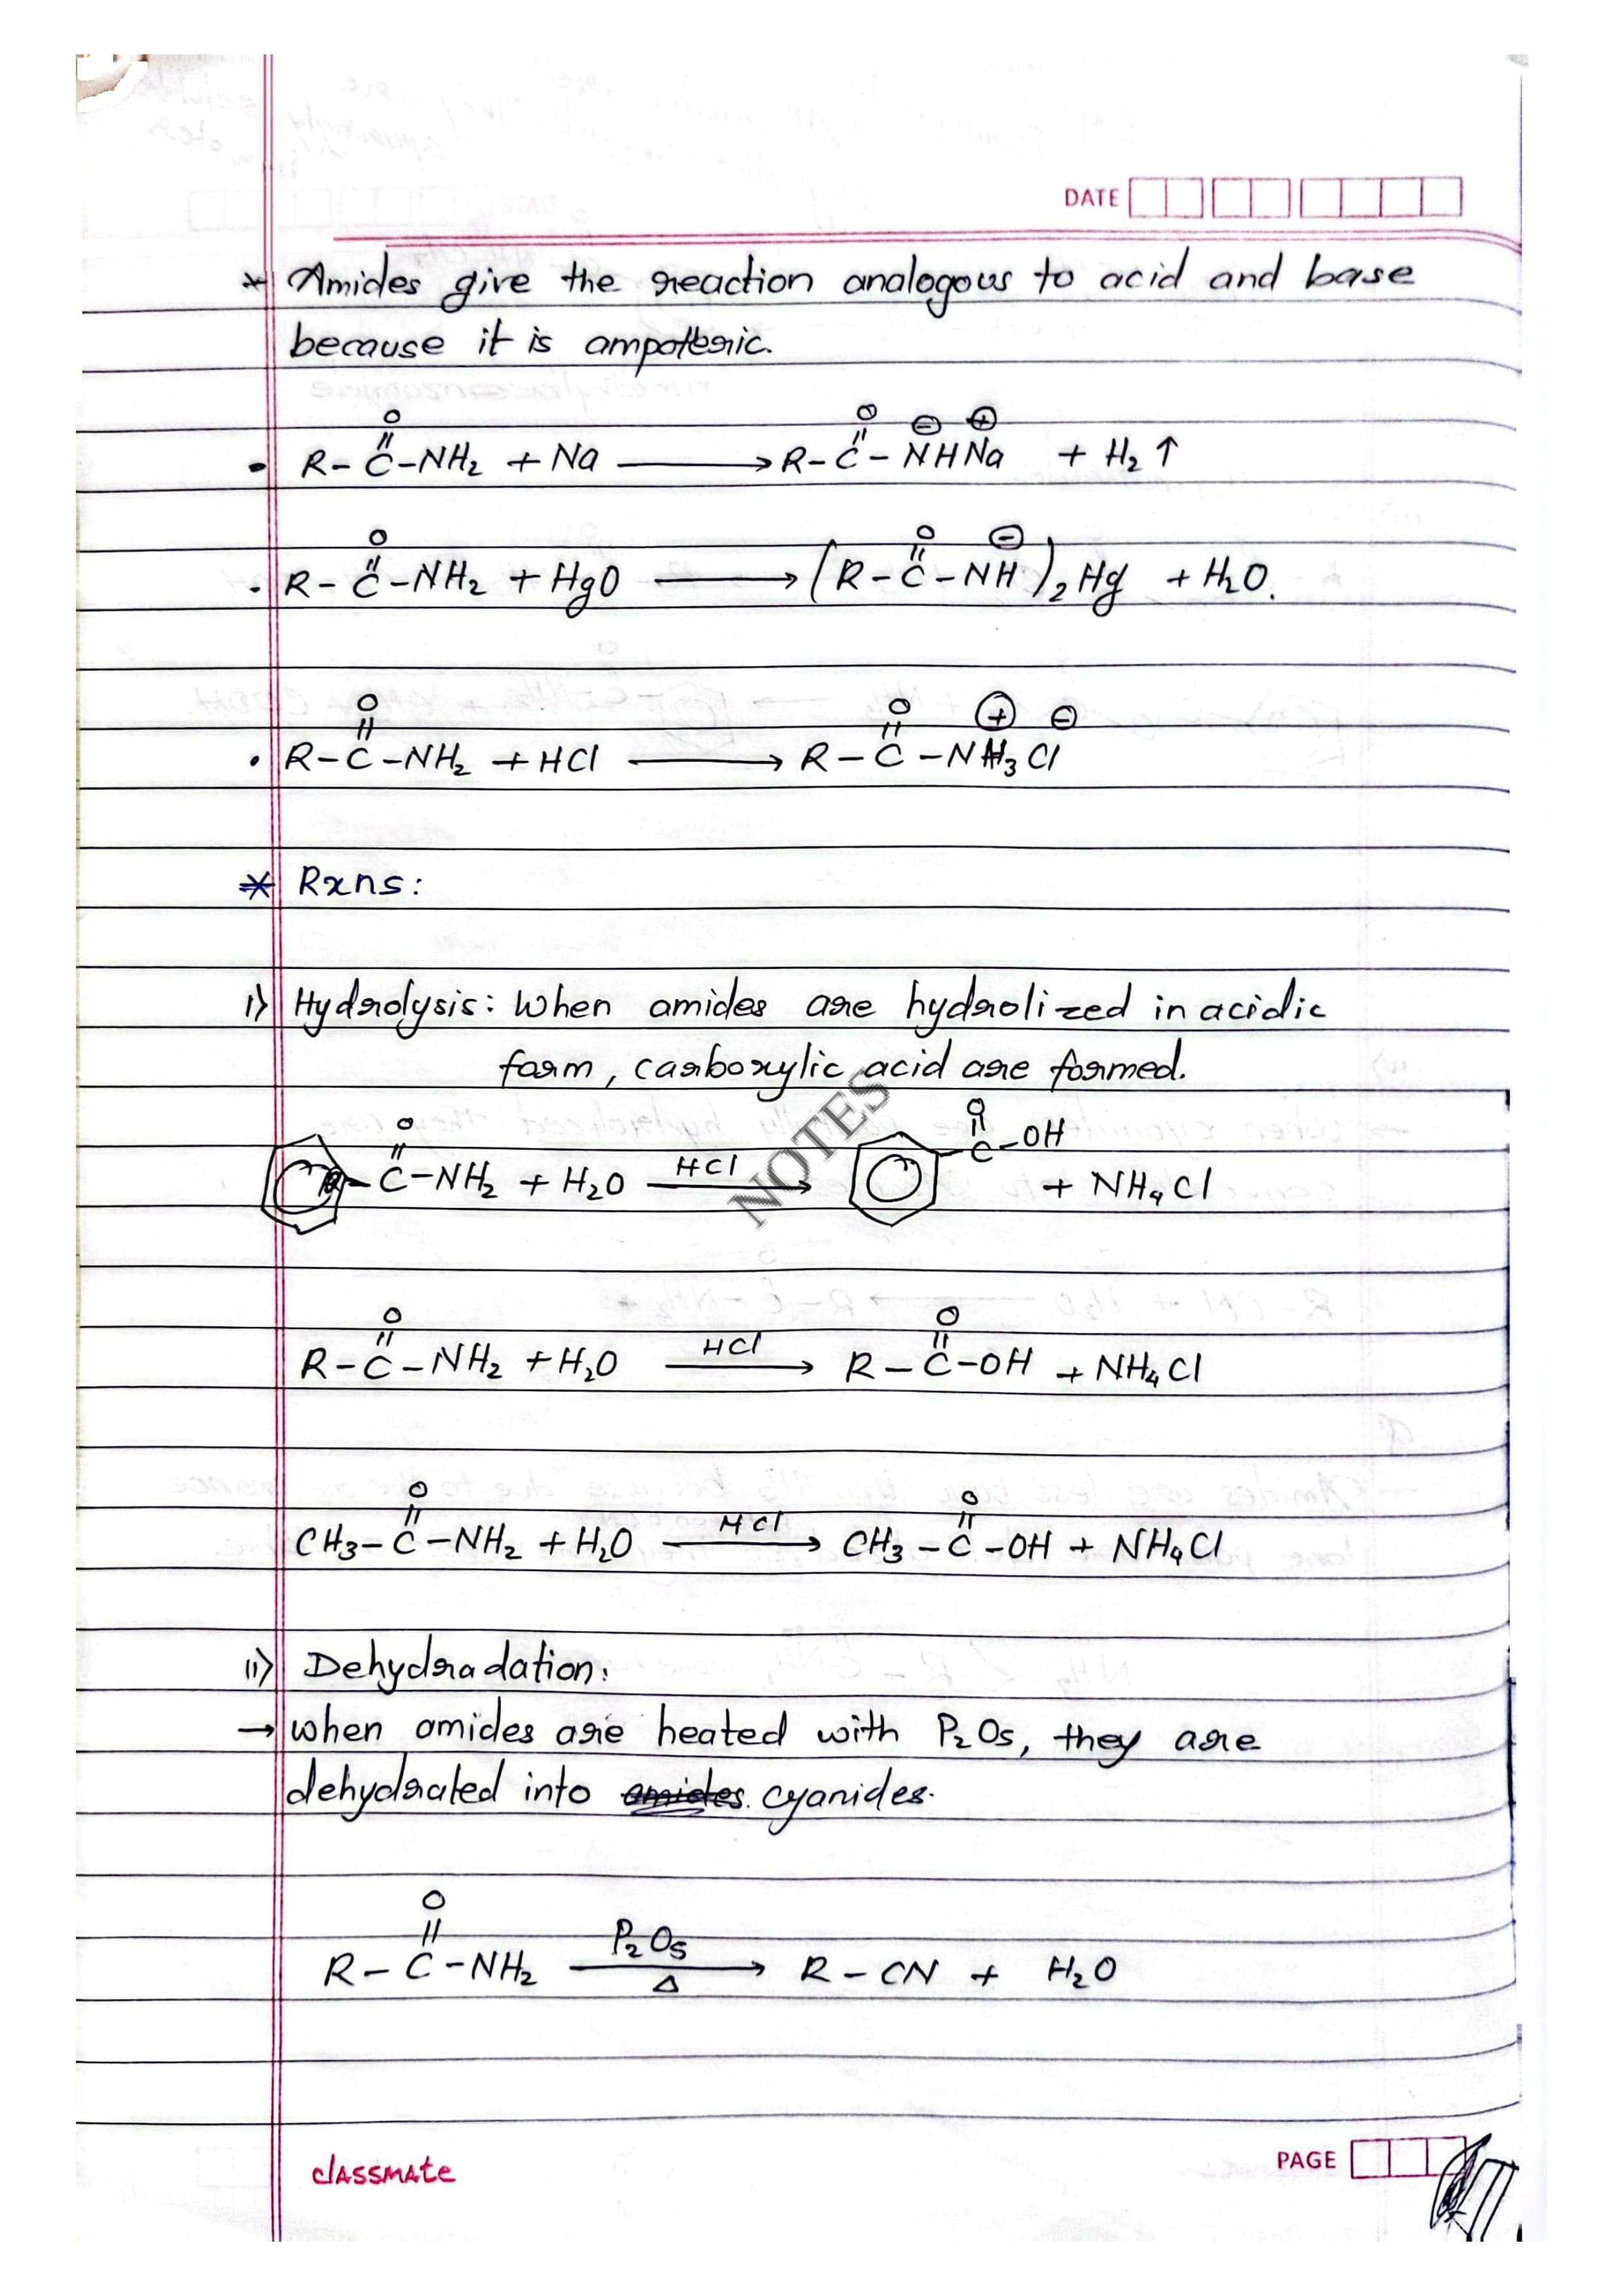 DATE
* Amides give the reaction analogous to acid and base
because it is ampoteric.
• R-C(=O)-NH₂ + Na ⟶ R-C(=O)-N⊖HNa⊕ + H₂↑
• R-C(=O)-NH₂ + HgO ⟶ (R-C(=O)-NH⊖)₂Hg + H₂O.
• R-C(=O)-NH₂ + HCl ⟶ R-C(=O)-NH₃⊕Cl⊖
* Rxns:
i) Hydrolysis: When amides are hydrolized in acidic
form, carboxylic acid are formed.
C(=O)-NH₂ + H₂O ⟶(HCl) C(=O)-OH + NH₄Cl
NOTES
R-C(=O)-NH₂ + H₂O ⟶(HCl) R-C(=O)-OH + NH₄Cl
CH₃-C(=O)-NH₂ + H₂O ⟶(HCl) CH₃-C(=O)-OH + NH₄Cl
ii) Dehydradation:
→ when amides are heated with P₂O₅, they are
dehydrated into amides. cyanides.
R-C(=O)-NH₂ ⟶(P₂O₅, Δ) R-CN + H₂O
classmate
PAGE